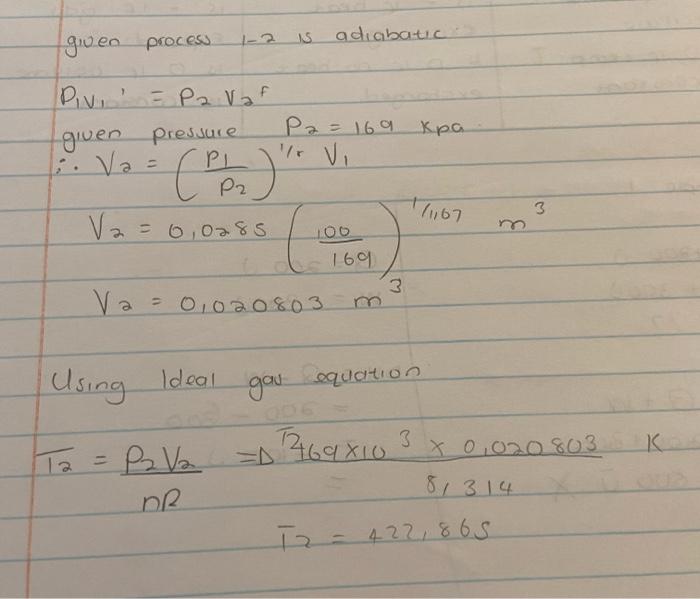 given process 1-2 is adiabatic
P1V1' = P2 V2^r
given pressure P2 = 169 Kpa
∴ V2 = (P1/P2)^1/r V1
V2 = 0,0285 (100/169)^1/1,67 m^3
V2 = 0,020803 m^3
Using Ideal gas equation
T2 = P2V2/nR => T2 169 x 10^3 x 0,020803/8,314 K
T2 = 422,865